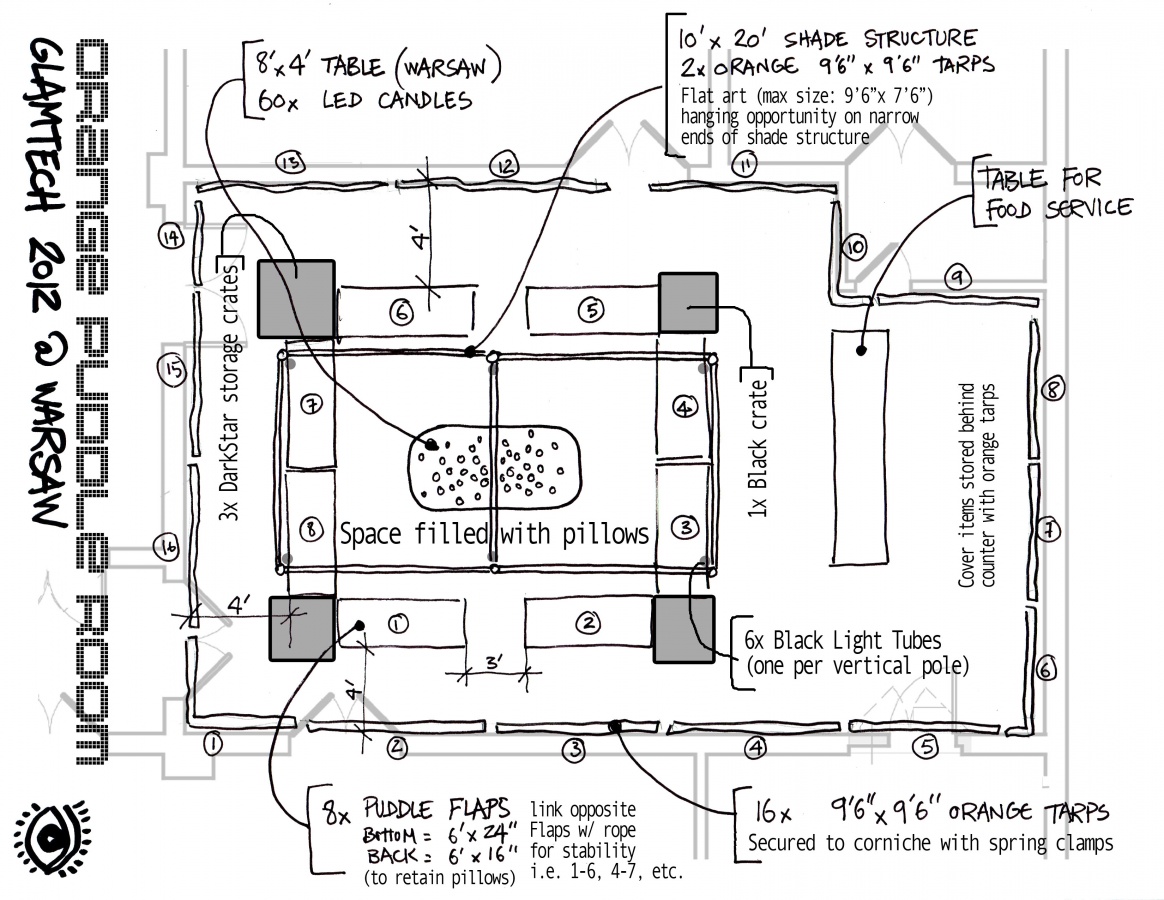 ORANGE PUDDLE ROOM
GLAMTECH 2012 @ WARSAW
8'x4' TABLE (WARSAW)
60x LED CANDLES
10' x 20' SHADE STRUCTURE
2x ORANGE 9'6" x 9'6" TARPS
Flat art (max size: 9'6"x 7'6")
hanging opportunity on narrow
ends of shade structure
TABLE FOR
FOOD SERVICE
13
12
11
14
10
9
4'
3x DarkStar storage crates
6
5
15
7
4
1x Black crate
8
Cover items stored behind
counter with orange tarps
8
3
7
Space filled with pillows
16
4'
1
2
3'
4'
6x Black Light Tubes
(one per vertical pole)
6
1
2
3
4
5
8x PUDDLE FLAPS
BOTTOM = 6' x 24"
BACK = 6' x 16"
(to retain pillows)
link opposite
Flaps w/ rope
for stability
i.e. 1-6, 4-7, etc.
16x 9'6" x 9'6" ORANGE TARPS
Secured to corniche with spring clamps